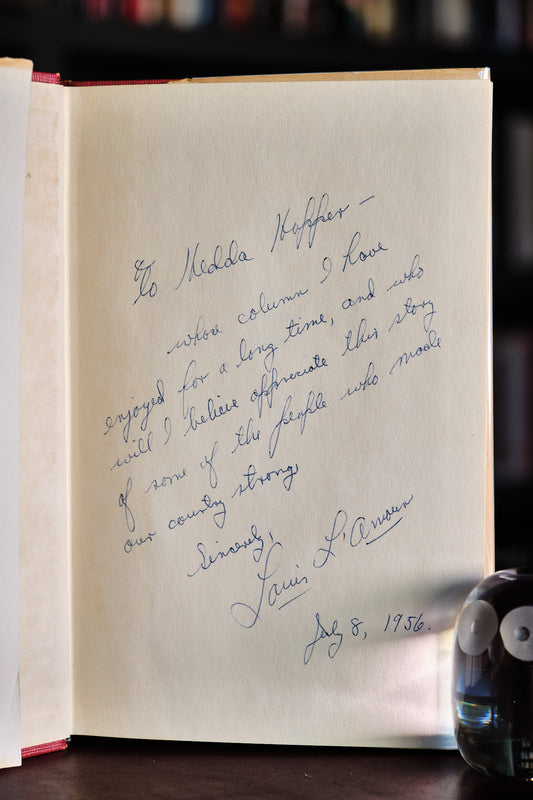 To Hedda Hopper —
whose column I have
enjoyed for a long time, and who
will I believe appreciate this story
of some of the people who made
our country strong
Sincerely,
Louis L'Amour
July 8, 1956.